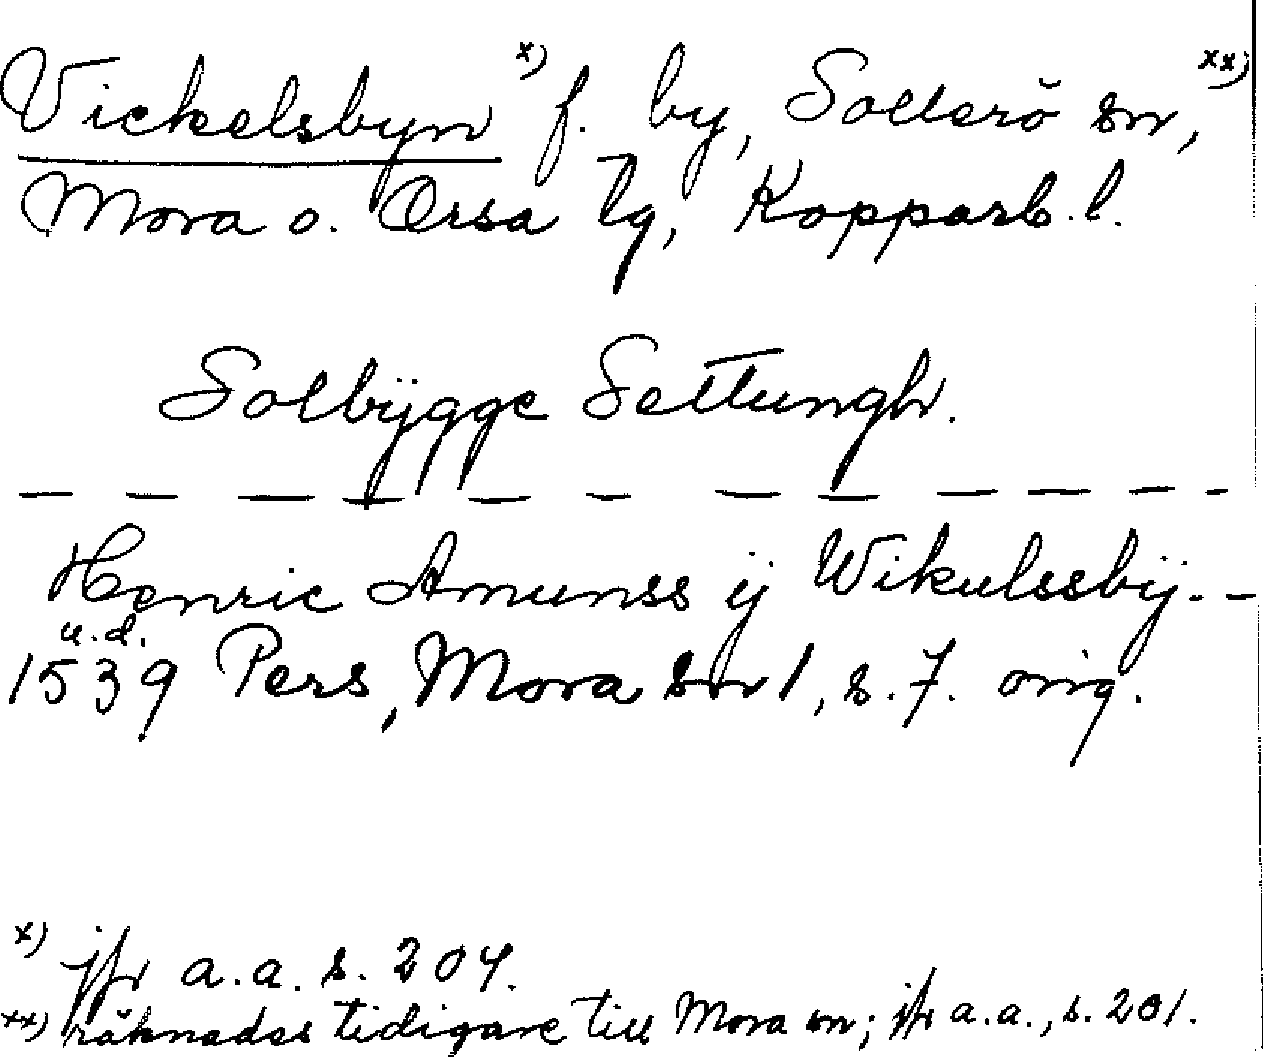 Vickelsbyn x) f. by, Sollerö sn, xx)
Mora o. Orsa tg, Kopparb. l.
Solbÿgge Settungh.
— — — — — — — — — — — —
Henric Amunss ij Wikulssbÿ. –
u.d.
1539 Pers, Mora sn 1, s. 7. orig.
x) jfr a.a. s. 204.
xx) räknades tidigare till Mora sn; jfr a.a., s. 201.